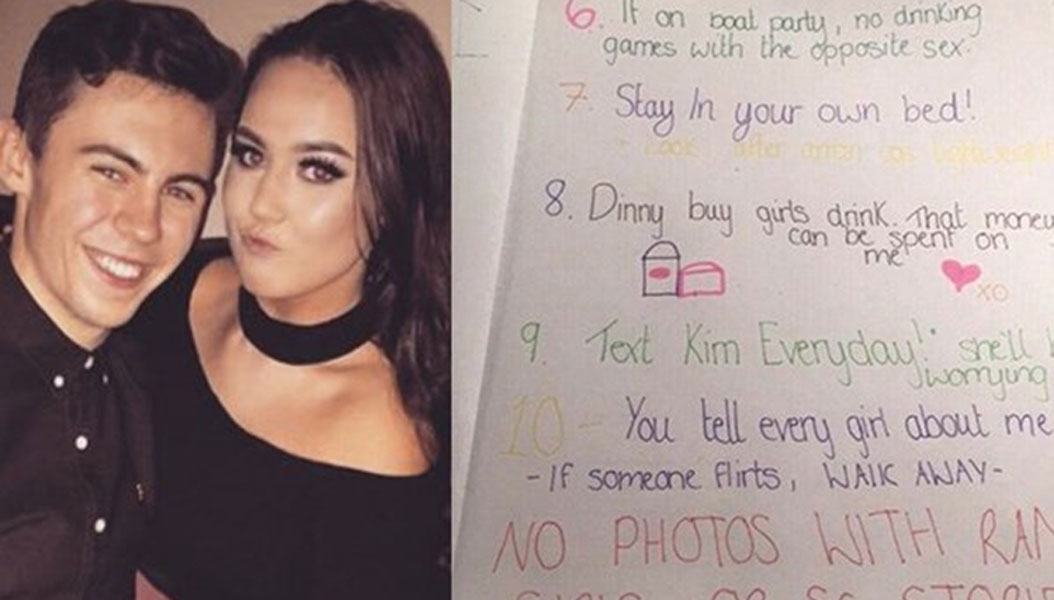 6. If on boat party, no drinking
games with the opposite sex.
7. Stay In your own bed!
8. Dinny buy girls drink. That money
can be spent on
me
XO
9. Text Kim Everyday! she'll
worrying
10 - You tell every girl about me
- If someone flirts, WALK AWAY -
NO PHOTOS WITH